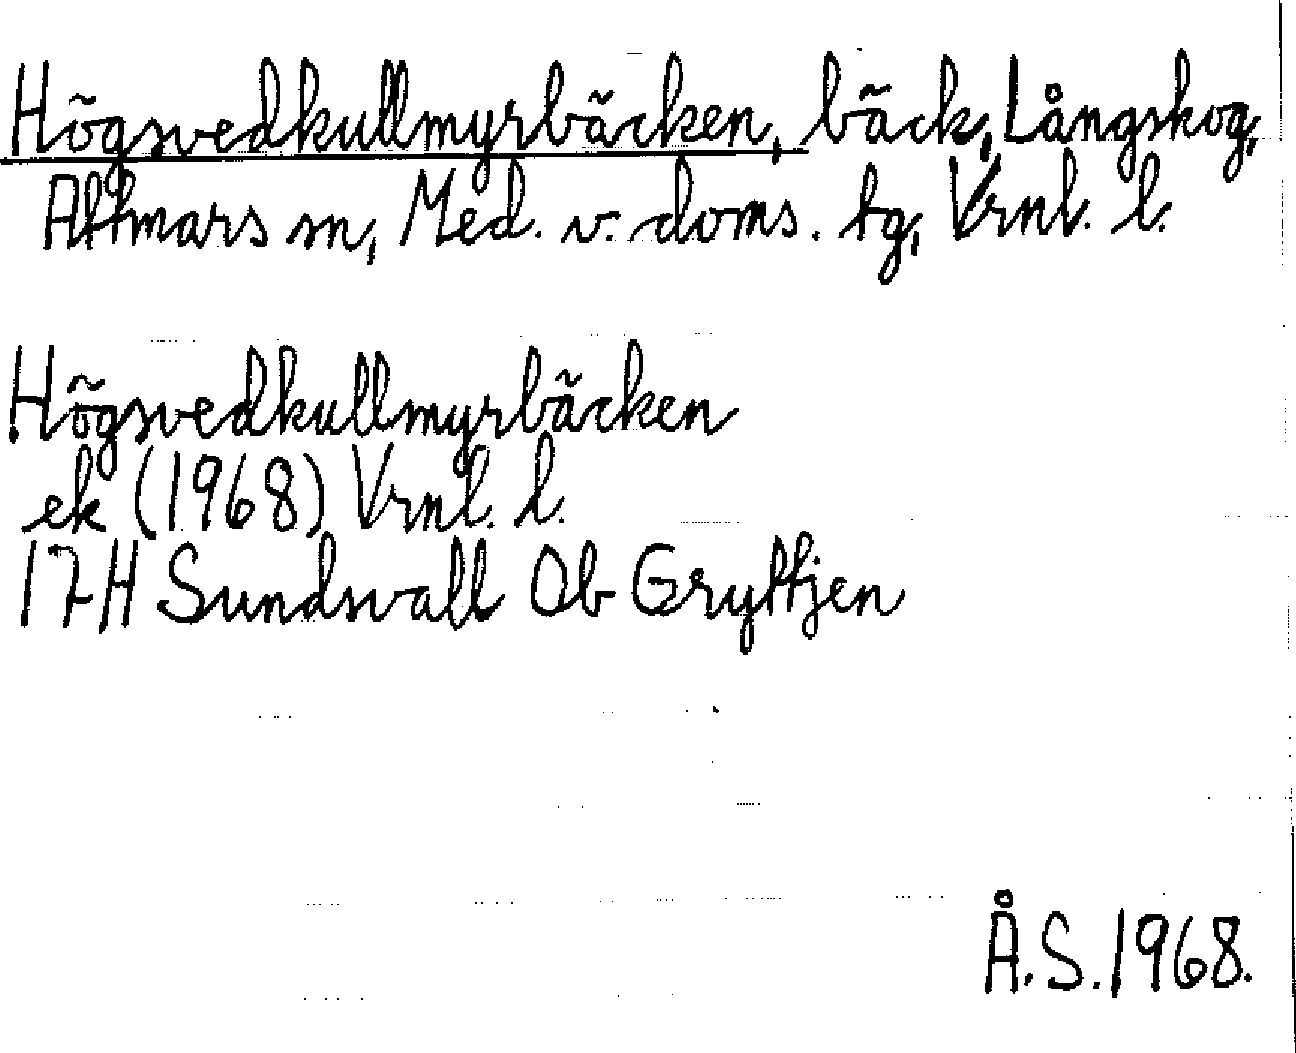 Högsvedkullmyrbäcken, bäck, Långskog,
Attmars sn, Med. v. doms. tg, Vrnl. l.
Högsvedkullmyrbäcken
ek (1968) Vrnl. l.
17H Sundsvall Ob Gryttjen
Å.S. 1968.